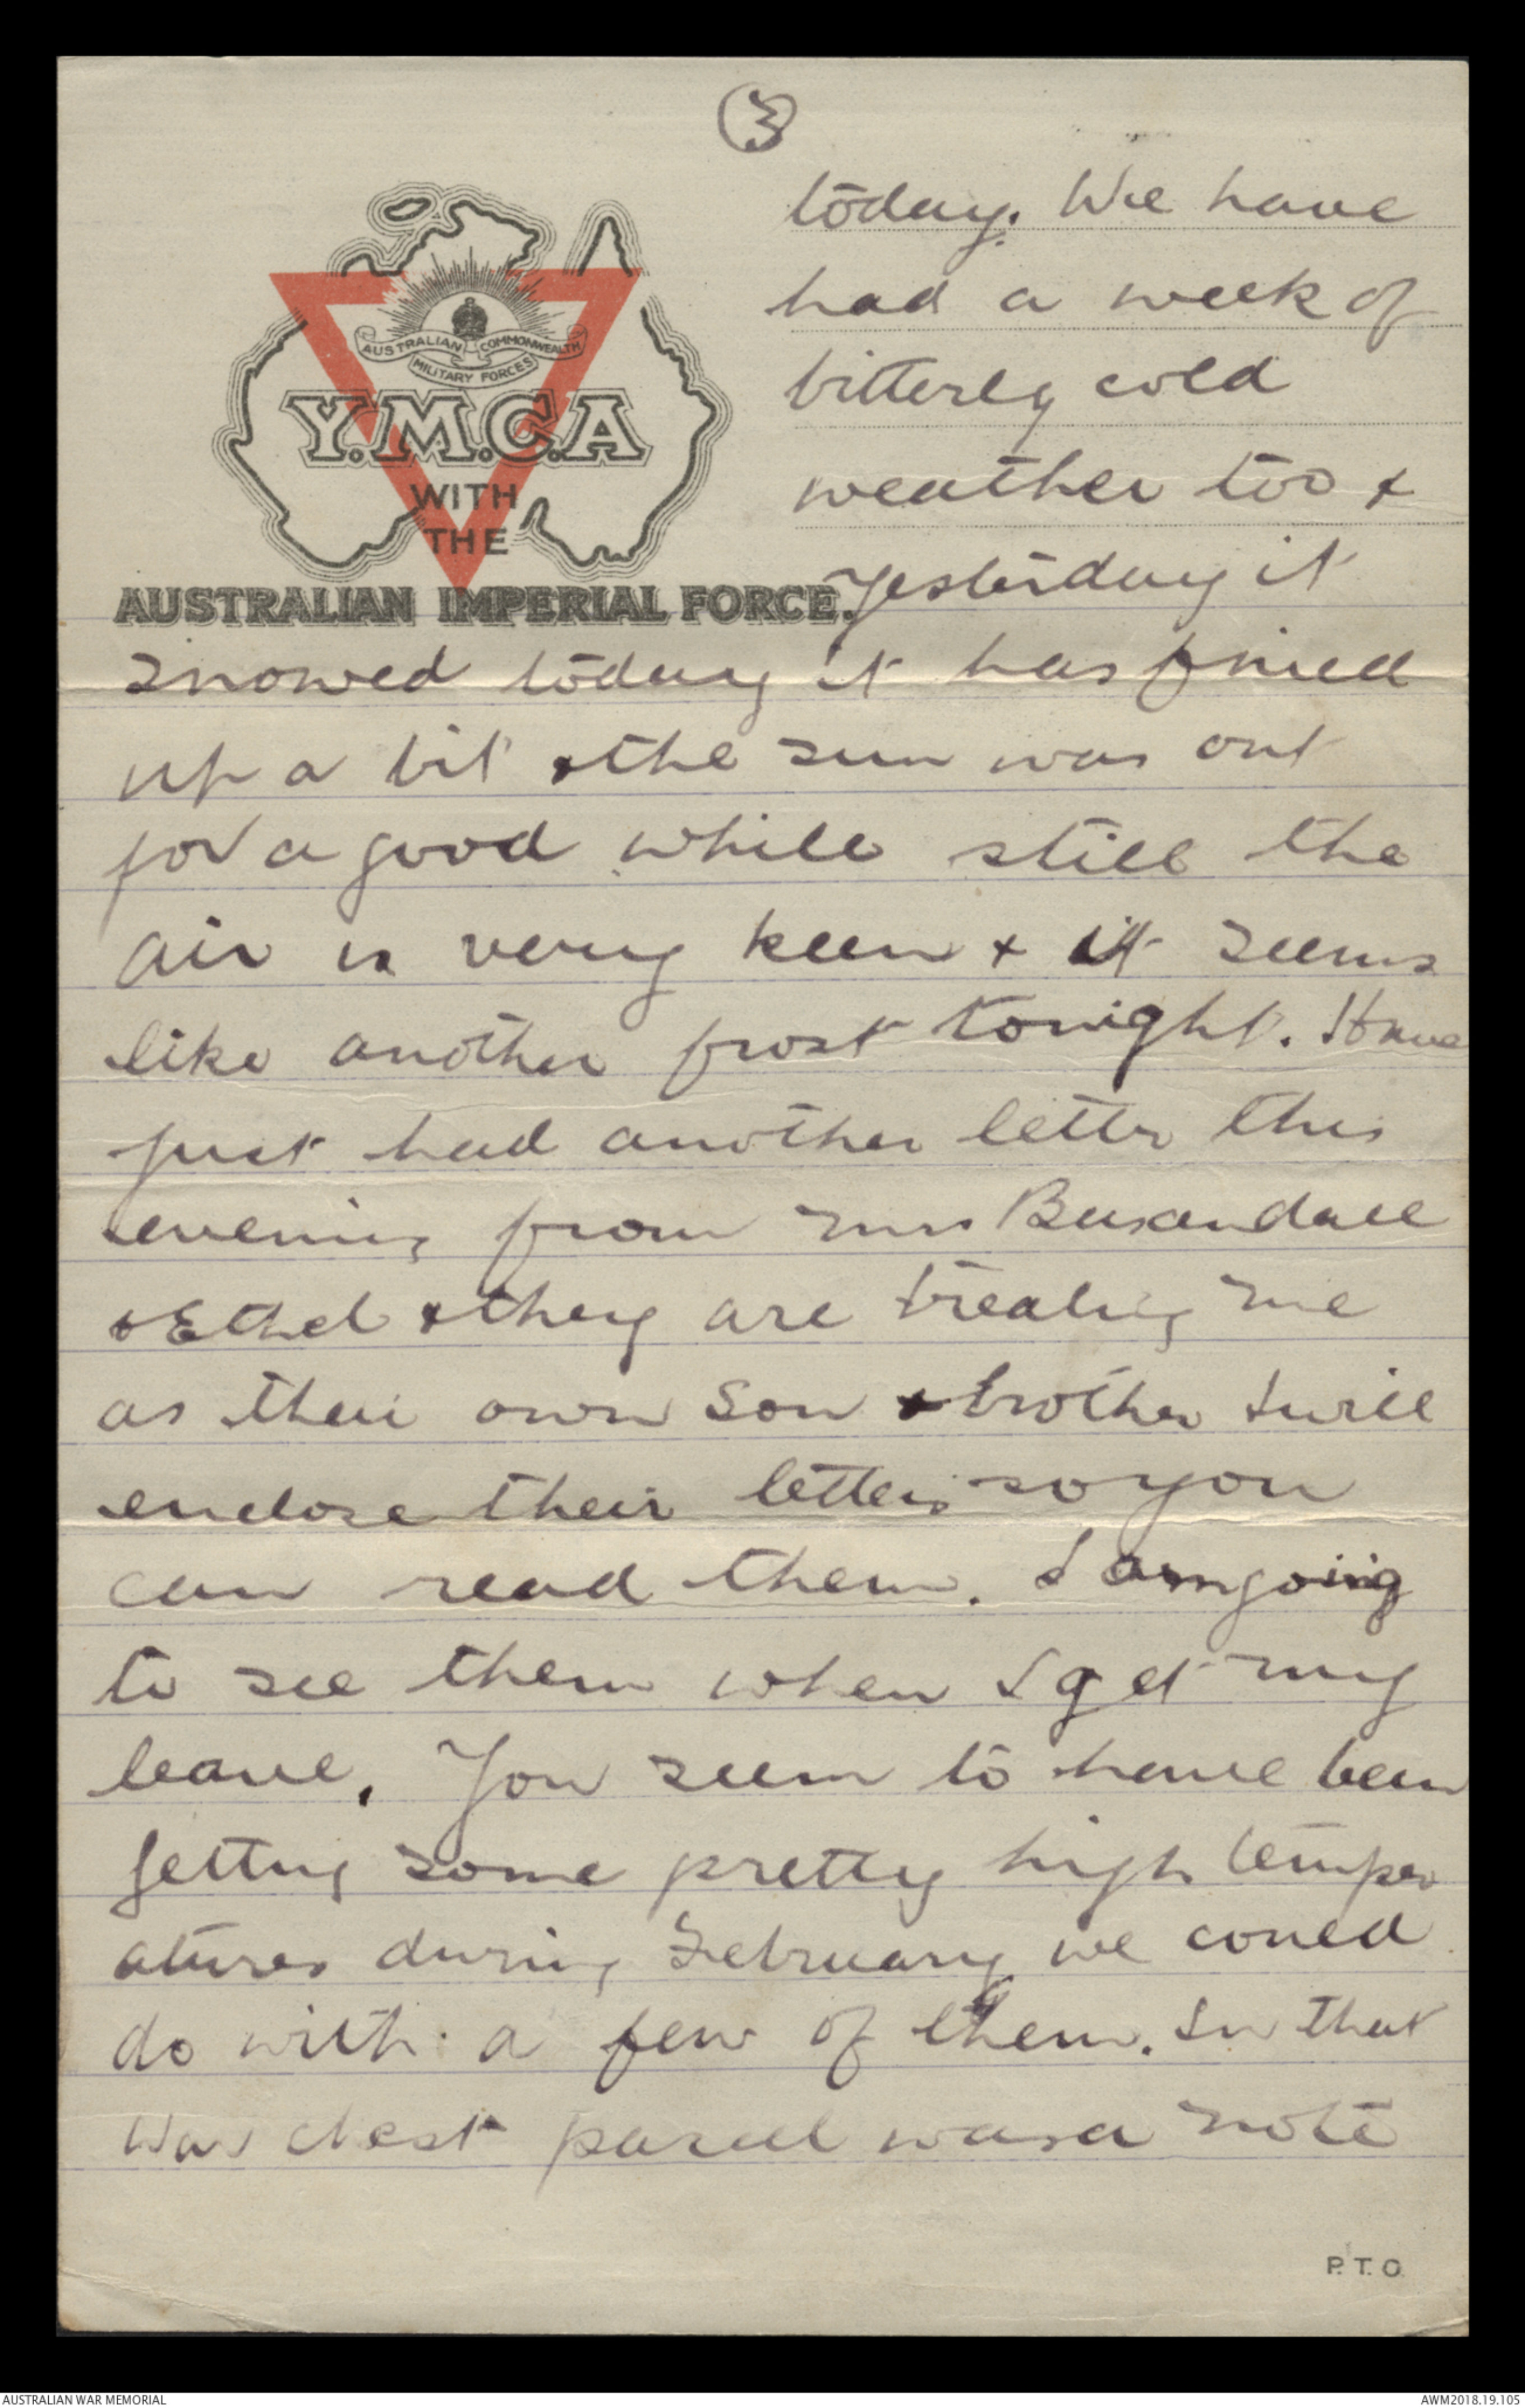 3
today. We have
had a week of
bitterly cold
weather too &
AUSTRALIAN COMMONWEALTH
MILITARY FORCES
Y.M.C.A
WITH
THE
AUSTRALIAN IMPERIAL FORCE.
yesterday it
snowed today it has fined
up a bit & the sun was out
for a good while still the
air is very keen & it seems
like another frost tonight. Have
just had another letter this
evening from Mrs Buxandall
& Ethel & they are treating me
as their own son & brother I will
enclose their letters so you
can read them. I am going
to see them when I get my
leave. You seem to have been
getting some pretty high temper
atures during February we could
do with a few of them. In that
War chest parcel was a note
P.T.O.
AUSTRALIAN WAR MEMORIAL
AWM2018.19.105